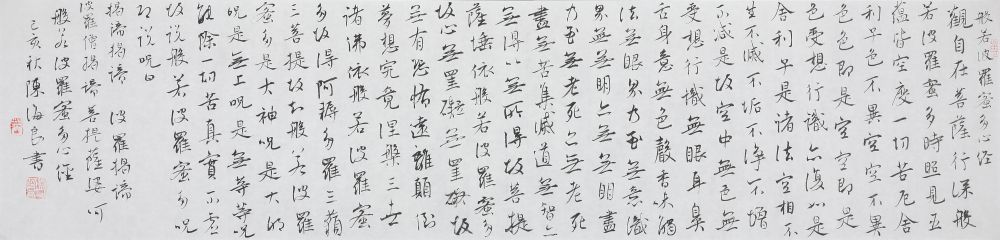 般若波羅蜜多心經
觀自在菩薩行深般
若波羅蜜多時照見五
蘊皆空度一切苦厄舍
利子色不異空空不異
色色即是空空即是
色受想行識亦復如是
舍利子是諸法空相不
生不滅不垢不淨不增
不減是故空中無色無
受想行識無眼耳鼻
舌身意無色聲香味觸
法無眼界乃至無意識
界無無明亦無無明盡
乃至無老死亦無老死
盡無苦集滅道無智亦
無得以無所得故菩提
薩埵依般若波羅蜜多
故心無罣礙無罣礙故
無有恐怖遠離顛倒
夢想究竟涅槃三世
諸佛依般若波羅蜜
多故得阿耨多羅三藐
三菩提故知般若波羅
蜜多是大神呪是大明
呪是無上呪是無等等呪
能除一切苦真實不虛
故說般若波羅蜜多呪
即說呪曰
揭諦揭諦 波羅揭諦
波羅僧揭諦菩提薩婆訶
般若波羅蜜多心經
己亥秋陳海良書